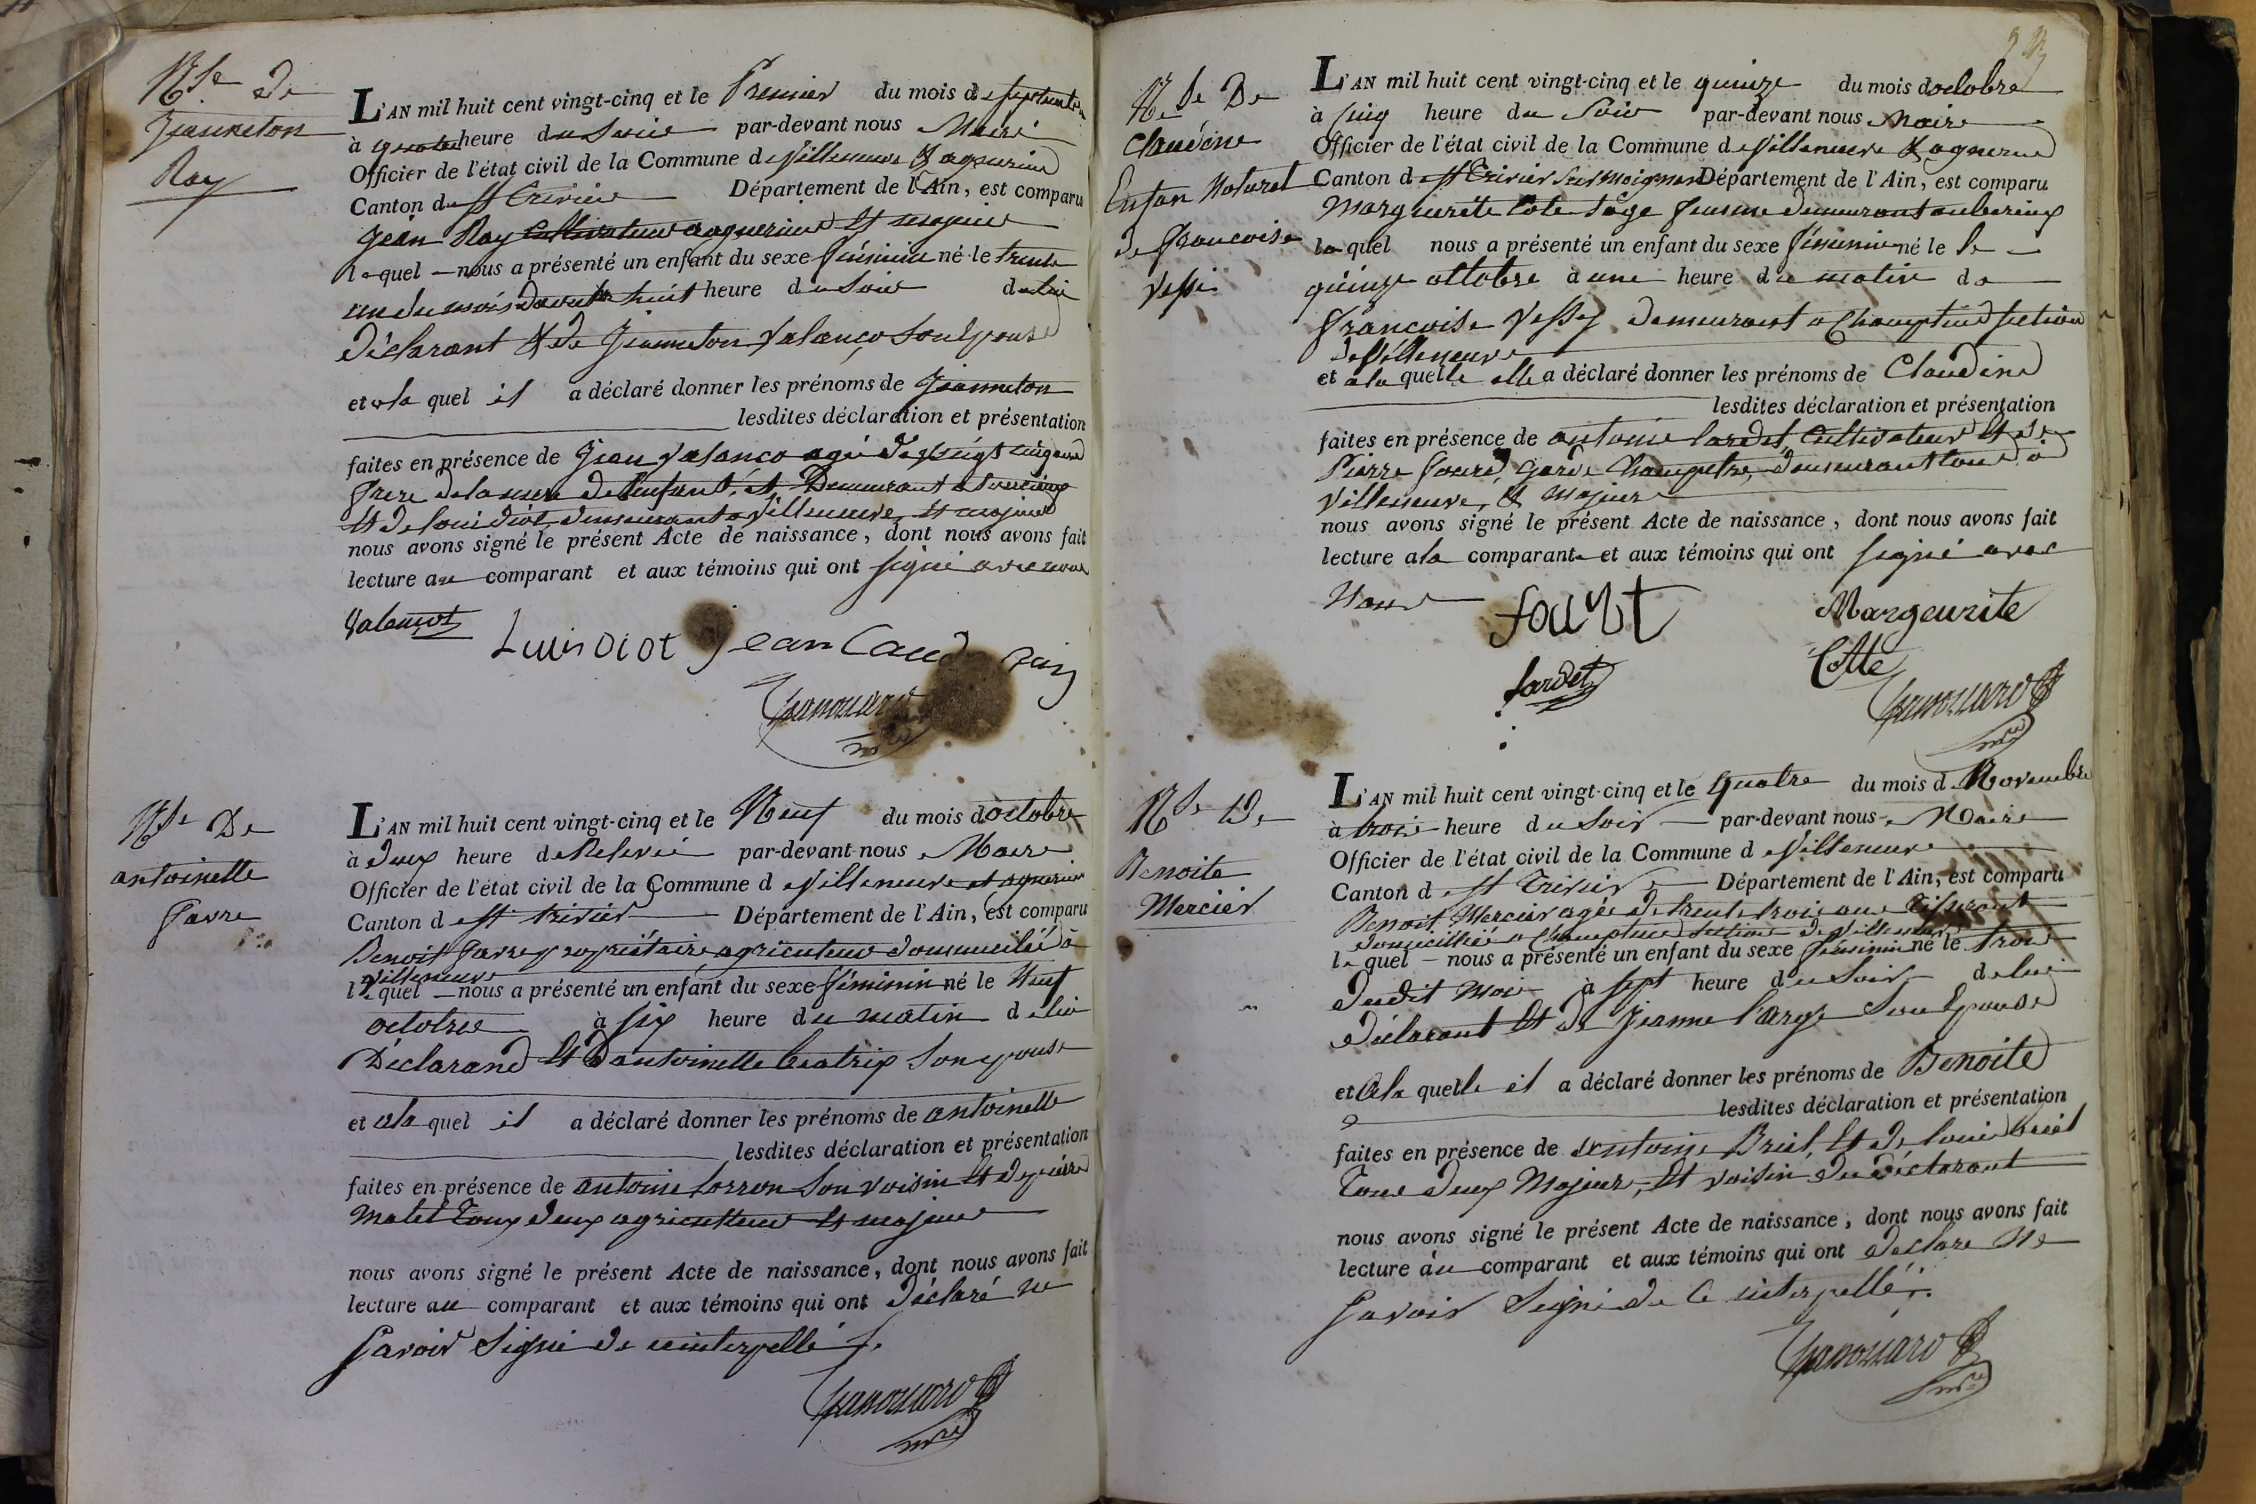 Nse de
Jeanneton
Ray
L'AN mil huit cent vingt-cinq et le Premier du mois de septembre
à quatre heure du Soir par-devant nous Maire
Officier de l'état civil de la Commune de Villeneuve & agnerein
Canton de St trivier Département de l'Ain, est comparu
Jean Ray Cultivateur agnerein et majeur
lequel nous a présenté un enfant du sexe féminin né le trente
un du mois daout a huit heure du Soir de lui
déclarant & de Jeanneton Valanço son Epouse
et ala quel il a déclaré donner les prénoms de Jeanneton
lesdites déclaration et présentation
faites en présence de Jean Valanco agé de vingt cinq ans
frere de la mere de lenfant, et Demeurant a
et de loui diot demeurant a Villeneuve, et majeur
nous avons signé le présent Acte de naissance, dont nous avons fait
lecture au comparant et aux témoins qui ont signé avec nous
Valançot Luis Diot jean Claud
mre
Nse De
antoinette
favre
L'AN mil huit cent vingt-cinq et le Neuf du mois doctobre
à deux heure de Relevée par-devant nous Maire
Officier de l'état civil de la Commune de Villeneuve et agnerein
Canton de St trivier Département de l'Ain, est comparu
Benoit favre propriétaire agriculteur doumicilié à
Villeneuve
lequel nous a présenté un enfant du sexe féminin né le Neuf
octobre à six heure du matin de lui
Déclarand et dantoinette beatrix son epouse
et ala quel il a déclaré donner les prénoms de antoinette
lesdites déclaration et présentation
faites en présence de antoine lorron Son voisin et de piere
Matel toux deux agriculteur et majeur
nous avons signé le présent Acte de naissance, dont nous avons fait
lecture au comparant et aux témoins qui ont déclaré ne
Savoir Signé de ce interpellé
mre
Nse De
Claudine
Enfan Naturel
de francoise
Vessi
L'AN mil huit cent vingt-cinq et le quinze du mois doctobre
à cinq heure du Soir par-devant nous Maire
Officier de l'état civil de la Commune de Villeneuve & agnerein
Canton de St Trivier Sur Moignan Département de l'Ain, est comparu
Marguerite Cote Sage femme demeurant
laquel nous a présenté un enfant du sexe féminin né le le
quinze octobre à une heure du matin de
francoise Vessy demeurant a Champtein section
de Villeneuve
et ala quelle elle a déclaré donner les prénoms de Claudine
lesdites déclaration et présentation
faites en présence de antoine lardet, Cultivateur et de
Pierre garde Champetre, demeurant tous à
Villeneuve, & majeur
nous avons signé le présent Acte de naissance, dont nous avons fait
lecture ala comparante et aux témoins qui ont signé avec
Nous Margeurite
Cotte
lardet
mre
Nse De
Benoite
Mercier
L'AN mil huit cent vingt-cinq et le quatre du mois de Novembre
à trois heure du Soir par-devant nous Maire
Officier de l'état civil de la Commune de Villeneuve
Canton de St Trivier Département de l'Ain, est comparu
Benoit Mercier agée de trente trois ans
domicillié a Champtein section de Villeneuve
lequel nous a présenté un enfant du sexe féminin né le trois
dudit Mois à sept heure du Soir de lui
déclarant et de Jeanne Son Epouse
et ala quelle il a déclaré donner les prénoms de Benoite
lesdites déclaration et présentation
faites en présence de antoine Briel, et de loui briel
Tous deux Majeur, et voisin du déclarant
nous avons signé le présent Acte de naissance, dont nous avons fait
lecture au comparant et aux témoins qui ont déclare Ne
Savoir Signé de Ce interpellé
mre